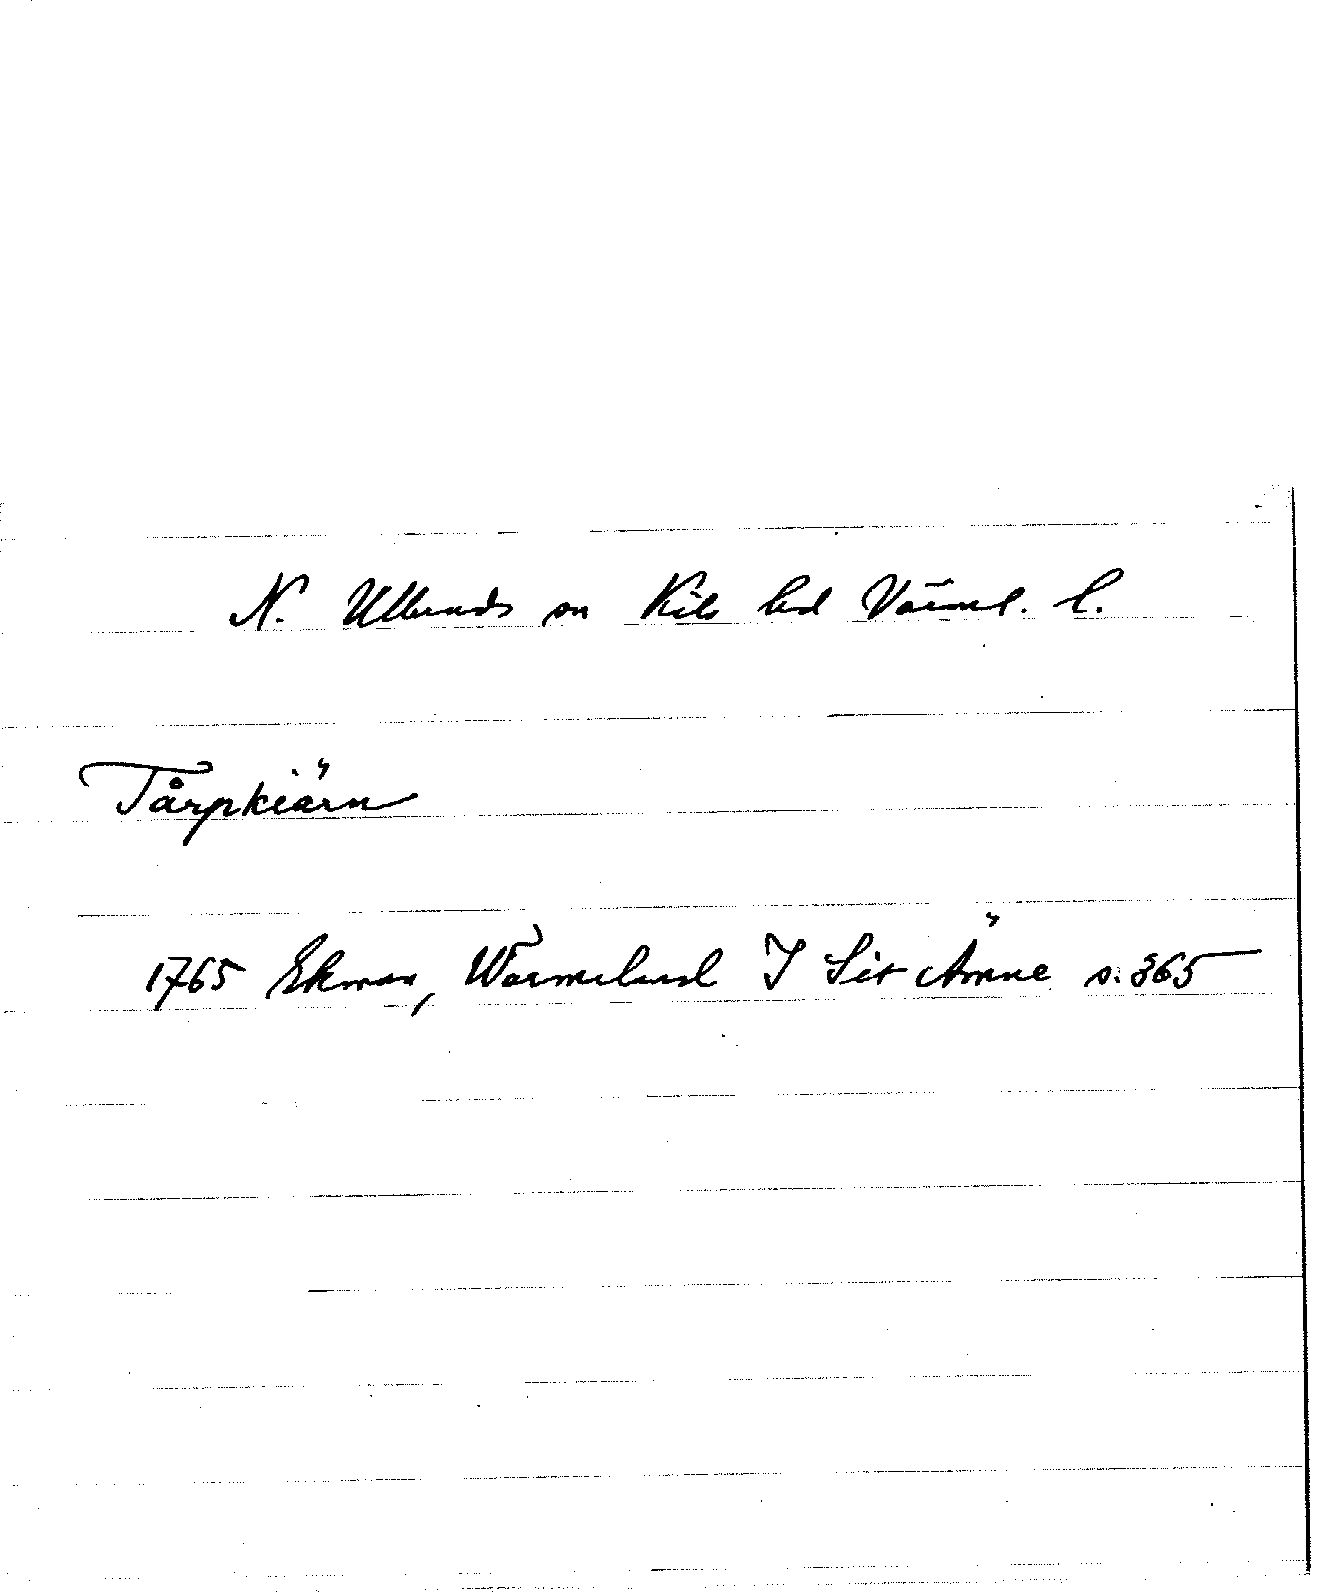 N. Ulleruds sn Kils hd Värml. l.
Tårpkiärn
1765 Ekman, Wärmeland I Sit Ämne s. 365